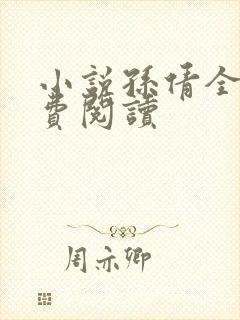 小說孫倩全
費閱讀
周亦卿